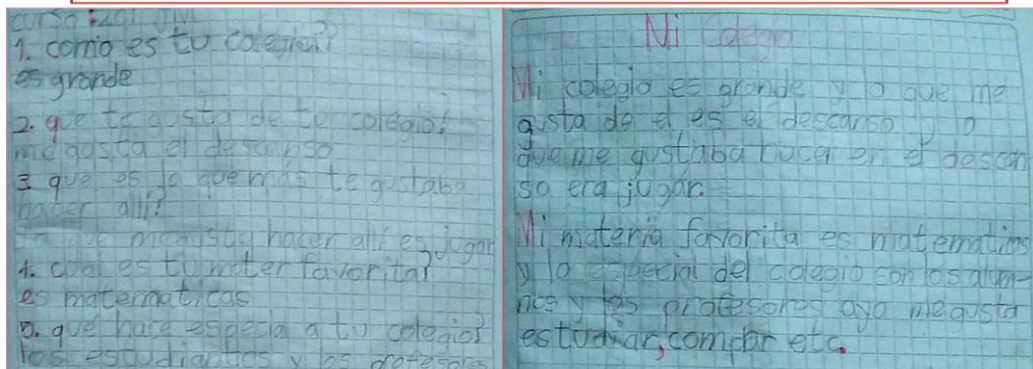 1. como es tu colegio?
es grande
2. que te gusta de tu colegio?
me gusta el descanso
3 que es lo que más te gustaba
hacer allí?
lo que me gusta hacer alli es jugar
4. cual es tu mater favorita?
es matematicas
5. que hace especial a tu colegio?
los estudiantes y los profesores
Mi colegio
Mi colegio es grande y lo que me
gusta de el es el descanso y lo
que me gustaba hacer en el descan
so era jugar.
Mi materia favorita es matematicas
y lo especial del colegio son los alum-
nos y los profesores aya me gusta
estudiar, compar etc.